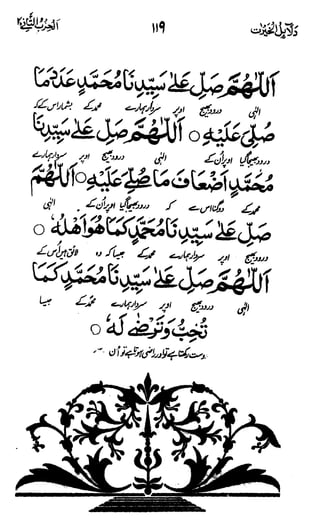 دلائل الخیرات ۱۱۹ الحزب الثانی ۲
اَللّٰهُمَّ صَلِّ عَلٰى سَيِّدِنَا مُحَمَّدٍ عَدَدَ مَا
الٰہی درود بھیج اوپر سردار ہمارے محمد کے بشمار اس کے کہ
صُلِّيَ عَلَيْهِ ○ اَللّٰهُمَّ صَلِّ عَلٰى سَيِّدِنَا
درود بھیجا گیا اوپر ان کے الٰہی درود بھیج اوپر سردار ہمارے
مُحَمَّدٍ اَضْعَافَ مَا صُلِّيَ عَلَيْهِ ○ اَللّٰهُمَّ
محمد کے دوگنا اس سے کہ درود بھیجا گیا اوپر ان کے الٰہی
صَلِّ عَلٰى سَيِّدِنَا مُحَمَّدٍ كَمَا هُوَ اَهْلُهٗ ○
درود بھیج اوپر سردار ہمارے محمد کے جیسا کہ وہ لائق ہیں اس کے
اَللّٰهُمَّ صَلِّ عَلٰى سَيِّدِنَا مُحَمَّدٍ كَمَا
الٰہی درود بھیج اوپر سردار ہمارے محمد کے جیسا
تُحِبُّ وَتَرْضٰى لَهٗ ○
دوست رکھتا ہے تو اور راضی ہوتا ہے تو ان